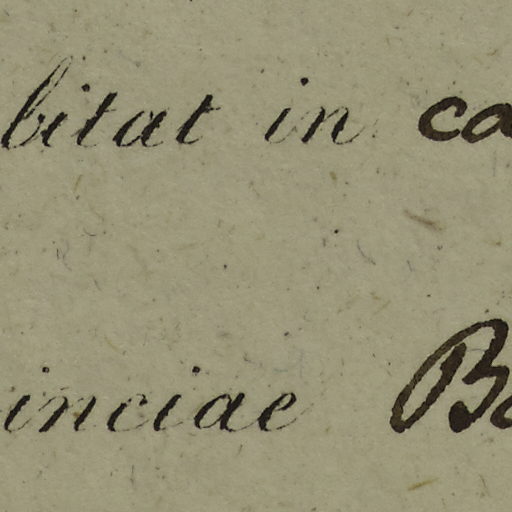 bitat in ca
inciae Ba